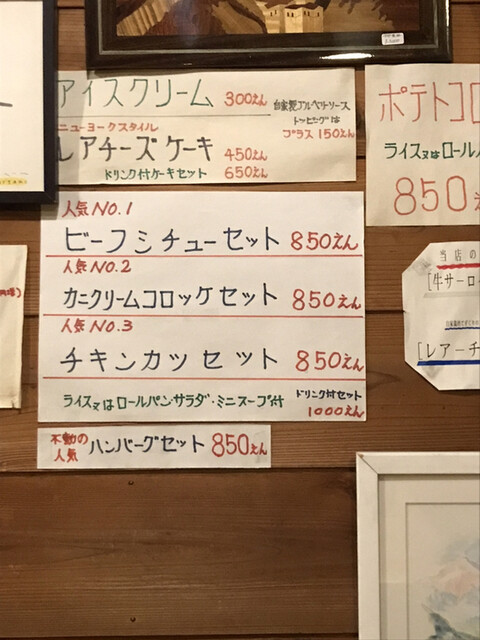 アイスクリーム 300えん
自家製ブルーベリーソース
トッピングは
プラス150えん
ニューヨークスタイル
レアチーズケーキ 450えん
ドリンク付ケーキセット 650えん
ポテトコロ
ライス又はロールパ
850
人気No.1
ビーフシチューセット 850えん
人気No.2
カニクリームコロッケセット 850えん
人気No.3
チキンカツセット 850えん
ライス又はロールパン・サラダ・ミニスープ付
ドリンク付セット
1000えん
不動の
人気
ハンバーグセット 850えん
当店の
[牛サーロ
[レアーチ